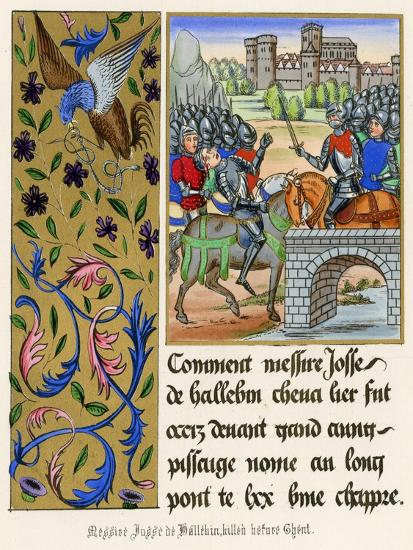 Comment messire Josse
de hallebin cheualier fut
occiz deuant gand aung
pissauge nome au long
pont te lxx bme chappre.
Messire Josse de Hallebin, killed before Ghent.